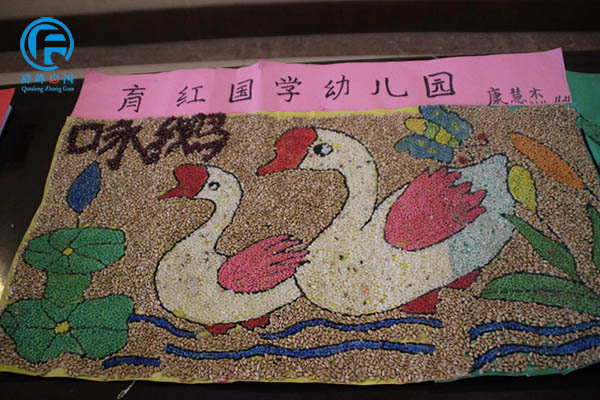 Qunfeng Zhong Guo
育红国学幼儿园
康慧杰
咏鹅